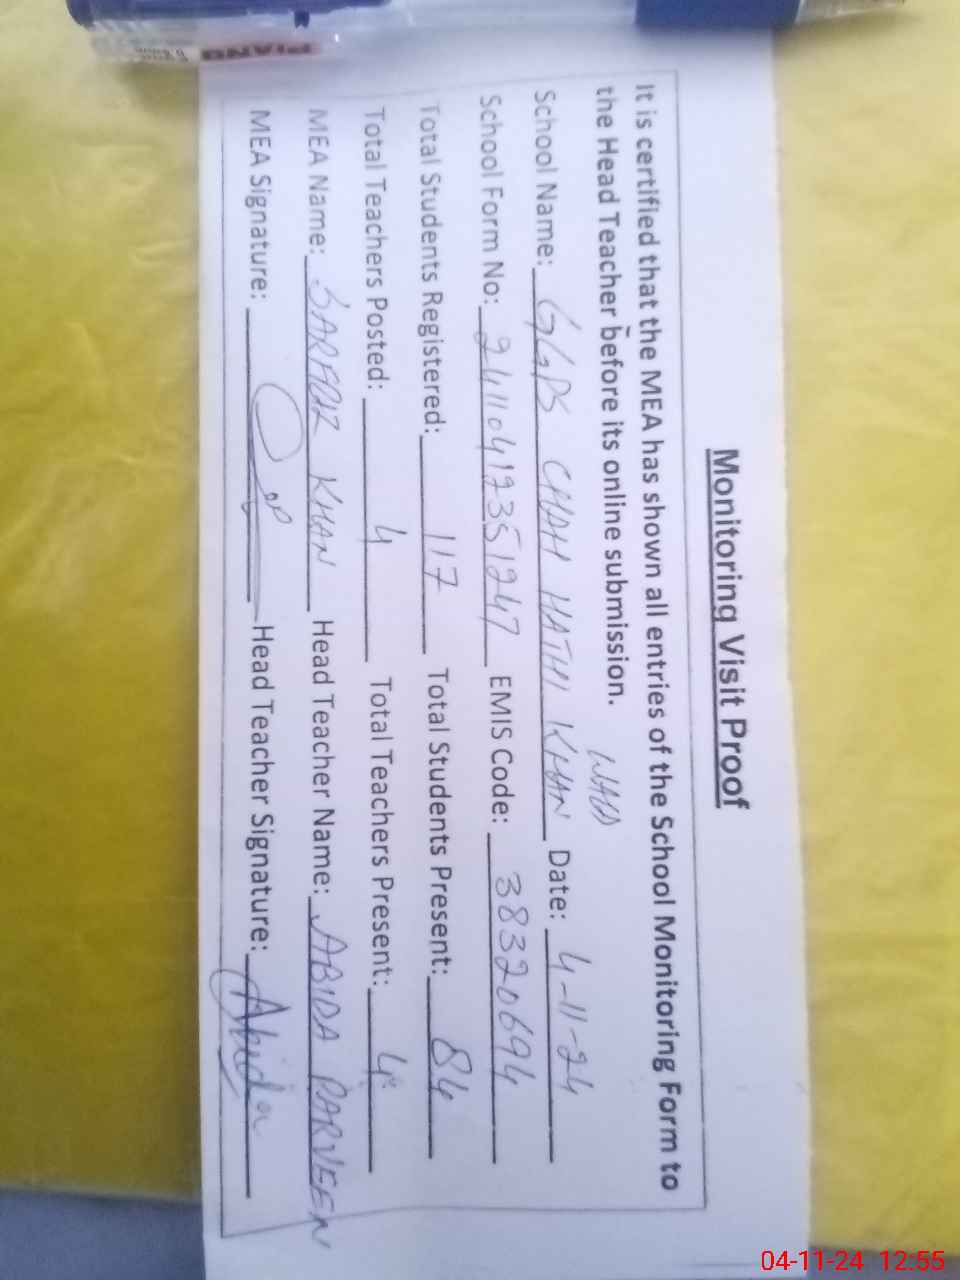 Monitoring Visit Proof
It is certified that the MEA has shown all entries of the School Monitoring Form to
the Head Teacher before its online submission.
School Name: GGPS CHAH HATHI KHAN WALA Date: 4-11-24
School Form No: 24110412351247 EMIS Code: 38320694
Total Students Registered: 117 Total Students Present: 84
Total Teachers Posted: 4 Total Teachers Present: 4
MEA Name: SARFRAZ KHAN Head Teacher Name: ABIDA PARVEEN
MEA Signature: Head Teacher Signature: Abida
PIANO
04-11-24 12:55